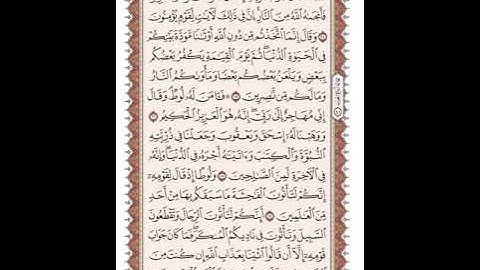 فَأَنجَىٰهُ اُللَّهُ مِنَ اَلنَّارِ إِنَّ فِي ذَٰلِكَ لَأٓيَٰتٖ لِّقَوْمٖ يُؤْمِنُونَ
وَقَالَ إِنَّمَا اَتَّخَذتُّم مِّن دُونِ اِللَّهِ أَوْثَٰنٗا مَّوَدَّةٗ بَيْنَكُمْ
فِي اِلْحَيَوٰةِ اِلدُّنْيَا ثُمَّ يَوْمَ اَلْقِيَٰمَةِ يَكْفُرُ بَعْضُكُم
بِبَعْضٖ وَيَلْعَنُ بَعْضُكُم بَعْضٗا وَمَأْوَىٰكُمُ اُلنَّارُ
وَمَا لَكُم مِّن نَّٰصِرِينَ فَـَٔامَنَ لَهُۥ لُوطٞ وَقَالَ
إِنِّي مُهَاجِرٌ إِلَىٰ رَبِّيَ إِنَّهُۥ هُوَ اَلْعَزِيزُ اُلْحَكِيمُ
وَوَهَبْنَا لَهُۥ إِسْحَٰقَ وَيَعْقُوبَ وَجَعَلْنَا فِي ذُرِّيَّتِهِ
اِلنُّبُوَّةَ وَالْكِتَٰبَ وَءَاتَيْنَٰهُ أَجْرَهُۥ فِي اِلدُّنْيَا وَإِنَّهُۥ
فِي اِلْأٓخِرَةِ لَمِنَ اَلصَّٰلِحِينَ وَلُوطًا إِذْ قَالَ لِقَوْمِهِۦ
إِنَّكُمْ لَتَأْتُونَ اَلْفَٰحِشَةَ مَا سَبَقَكُم بِهَا مِنْ أَحَدٖ
مِّنَ اَلْعَٰلَمِينَ أَئِنَّكُمْ لَتَأْتُونَ اَلرِّجَالَ وَتَقْطَعُونَ
اَلسَّبِيلَ وَتَأْتُونَ فِي نَادِيكُمُ اُلْمُنكَرَ فَمَا كَانَ جَوَابَ
قَوْمِهِۦ إِلَّا أَن قَالُواْ اُئْتِنَا بِعَذَابِ اِللَّهِ إِن كُنتَ مِنَ